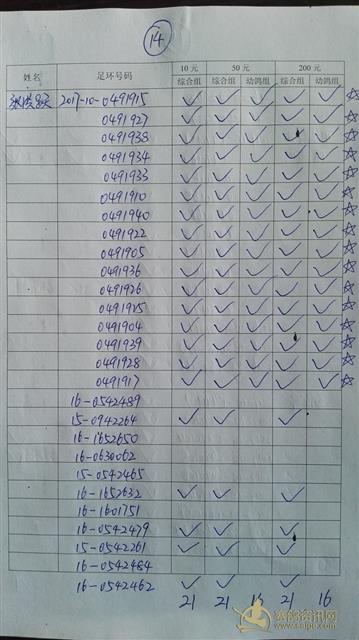 14
10元 50元 200元
姓名 足环号码 综合组 综合组 幼鸽组 综合组 幼鸽组
2017-10-0491915 ✓ ✓ ✓ ✓ ✓ ☆
0491927 ✓ ✓ ✓ ✓ ✓ ☆
0491938 ✓ ✓ ✓ ✓ ✓ ☆
0491934 ✓ ✓ ✓ ✓ ✓ ☆
0491933 ✓ ✓ ✓ ✓ ✓ ☆
0491910 ✓ ✓ ✓ ✓ ✓ ☆
0491940 ✓ ✓ ✓ ✓ ✓ ☆
0491922 ✓ ✓ ✓ ✓ ✓ ☆
0491905 ✓ ✓ ✓ ✓ ✓ ☆
0491936 ✓ ✓ ✓ ✓ ✓ ☆
0491926 ✓ ✓ ✓ ✓ ✓ ☆
0491915 ✓ ✓ ✓ ✓ ✓ ☆
0491904 ✓ ✓ ✓ ✓ ✓ ☆
0491939 ✓ ✓ ✓ ✓ ✓ ☆
0491928 ✓ ✓ ✓ ✓ ✓ ☆
0491917 ✓ ✓ ✓ ✓ ✓ ☆
16-0542489
15-0942264 ✓ ✓ ✓
16-1652650
16-0630062
15-0542465
16-1652632 ✓ ✓ ✓
16-1601751
16-0542479 ✓ ✓ ✓
15-0542261 ✓ ✓ ✓
16-0542484
16-0542462 ✓ ✓ ✓
21 21 16 21 16